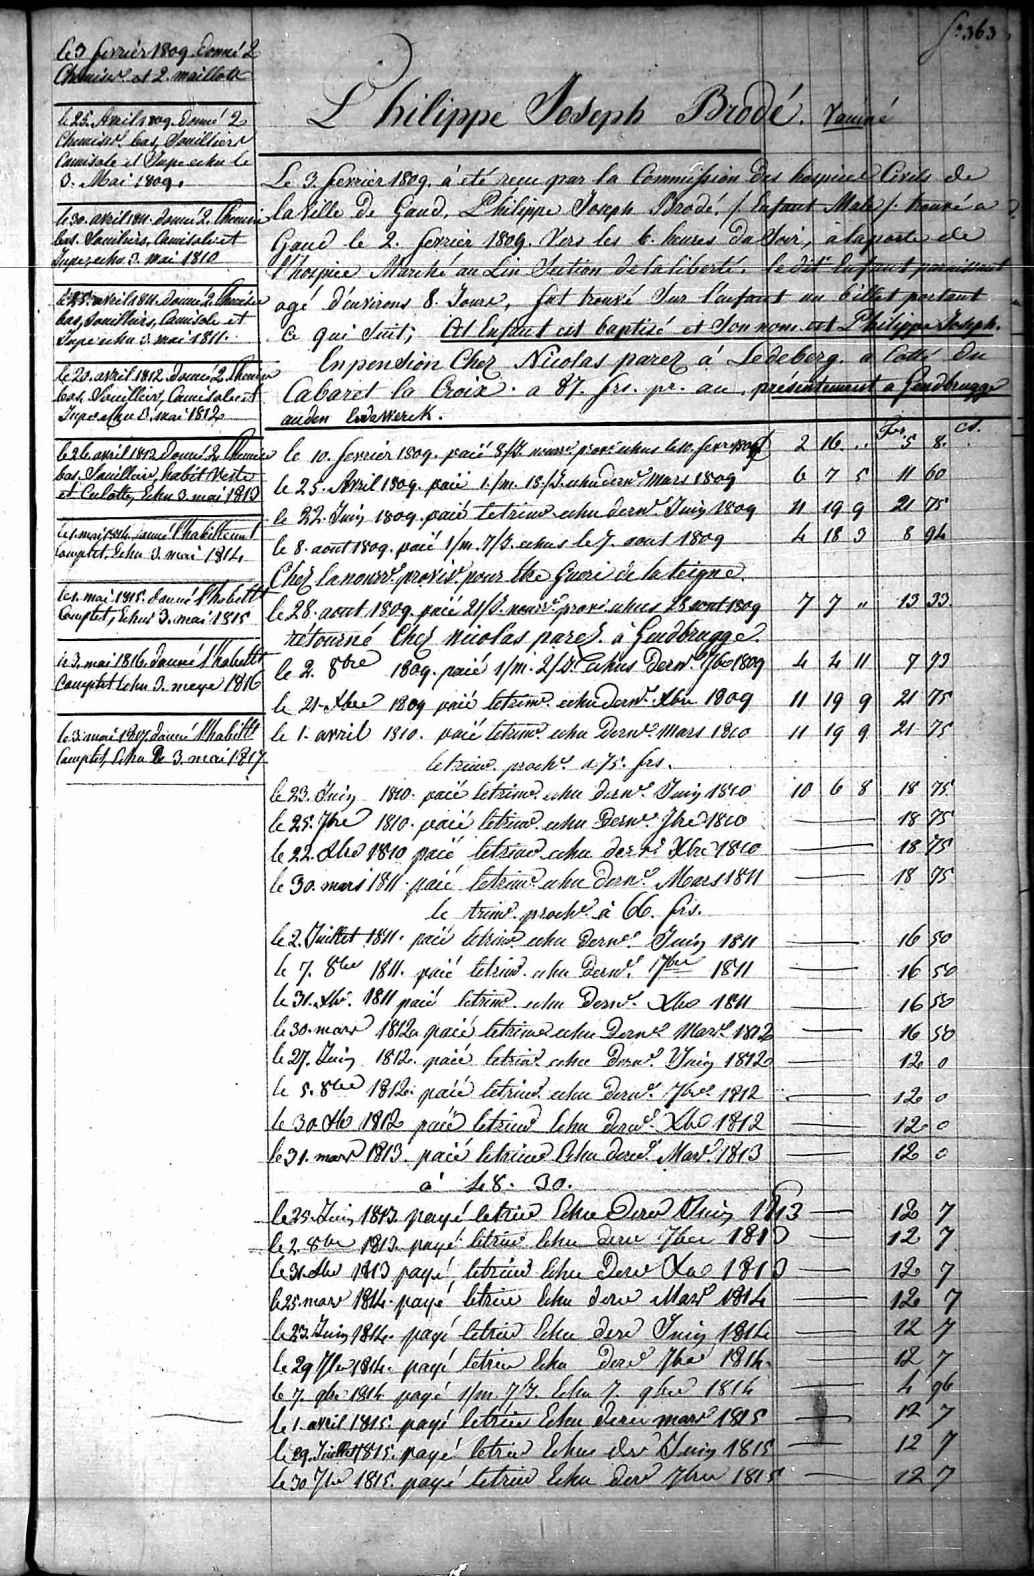 f° 363
le 3 fevrier 1809. donné 2
Chemises et 2. maillots
le 25. Avril 1809. donné 2
Chemises bas, Souilliers
Camisole et Jupe echu le
3. Mai 1809.
le 30. avril 1811. donné 2. Chemises
bas. Souiliers, Camisole et
Jupe, echu 3. mai 1810
le 25. avril 1811. donné 2. Chemises
bas, Souilliers, Camisole et
Jupe echu 3. mai 1811.
le 23. avril 1812. donné 2. Chemises
bas. Souilliers, Camisole et
Jupe echu 3. mai 1812
le 26 avril 1812 donné 2. Chemises
bas Souilliers, habit Veste
et Culotte, Echu 3. mai 1813
le 1. mai 1814. donné l'habillement
Complet, Echu 3. mai 1814.
le 1. mai 1815. donné l'habillt
Complet, Echu 3. mai 1815
le 3. mai 1816. donné l'habillt
Complet Echu 3. meye 1816
le 3. mai 1817. donné l'habillt
Complet, Echu le 3. mai 1817
Philippe Joseph Brodé.
Le 3. fevrier 1809, à été recu par la Commission des hospices Civils de
la Ville de Gand, Philippe Joseph Brodé. /: Enfant Male :/ trouvé a
Gand le 2. fevrier 1809. Vers les 6. heures du Soir, à la porte de
l'hospice Marché au Lin Section de la liberté. le dit Enfant paraissant
agé d'environs 8. Jours, fut trouvé Sur l'enfant un billet portant
Ce qui Suit; Cet Enfant est baptisé et Son nom est Philippe Joseph.
En pension Chez Nicolas parez à Ledeberg. a Coté du
Cabaret la Croix. a 87. frs. pr. an. présentement a Gendbrugge
auden
frs. ct.
le 10. fevrier 1809. paié 8/J. nourr. prov. echus le 10. fevr 1809 2 16 .. 5 8.
le 25. Avril 1809. paié 1./m. 18./J. echu dern. mars 1809 6 7 5 11 60
le 22. Juin 1809. paié le trim. echu dern. Juin 1809 11 19 9 21 75
le 8. aout 1809. paié 1/m. 7/J. echus le 7. aout 1809 4 18 3 8 94
Chez la nourr. provis. pour être Gueri de la teigne.
le 28. aout 1809. paié 21/J. nourr. prov. echus 28 aout 1809 7 7 " 13 33.
retourné Chez Nicolas parez. à Gendbrugge.
le 2. 8bre 1809. paié 1/m. 2/J. Echus Dern. 7bre 1809 4 4 11 7 73
le 21. Xbre 1809 paié le trim. echu dern. Xbre 1809 11 19 9 21 75
le 1. avril 1810. paié le trim. echu Dern. Mars 1810 11 19 9 21 75
le trim. proch. a 75. frs.
le 23. Juin 1810. paié le trim. echu dern. Juin 1810 10 6 8 18 75
le 25. 7bre 1810. paié le trim. echu Dern. 7bre 1810 18 75
le 22. Xbre 1810 paié, le trim. echu der. Xbre 1810 18 75
le 30. mars 1811. paié le trim. echu dern. Mars 1811 18 75
le trim. proch. à 66. frs.
le 2. Juillet 1811. paié le trim. echu dern. Juin 1811 16 50
le 7. 8bre 1811. paié le trim. echu Dern. 7bre 1811 16 50
le 31. Xbr. 1811 paié le trim. echu Dern. Xbre 1811 16 50
le 30. mars 1812. paié le trim. echu Dern. Mars 1812 16 50
le 27. Juin 1812. paié le trim. echu Dern. Juin 1812 12 0
le 5. 8bre 1812. paié le trim. echu dern. 7bre 1812 12 0
le 30. Xbre 1812 paié le trim. Echu dern. Xbre 1812 12 0
le 31. mars 1813. paié le trim. Echu dern. Mars 1813 12 0
à 48. 30.
le 25. Juin 1813. payé le trim. Echu Dern Juin 1813 12 7
le 2. 8bre 1813. payé le trim. Echu dern 7bre 1813 12 7
le 31. Xbre 1813 payé, le trim. Echu Dern Xbre 1813 12 7
le 25. mars 1814. payé le trim Echu dern Mars 1814 12 7
le 23. Juin 1814. payé le trim Echu dern Juin 1814 12 7
le 29 7bre 1814. payé le trim Echu dern 7bre 1814. 12 7
le 7. 9br. 1814 payé 1/m. 7/J. Echu 7. 9bre 1814 4 96
le 1. avril 1815. payé le trim Echu dern mars 1815 12 7
le 29. Juillet 1815. payé le trim Echus der Juin 1815 12 7
le 30 7bre 1815. payé le trim Echu der 7bre 1815 12 7